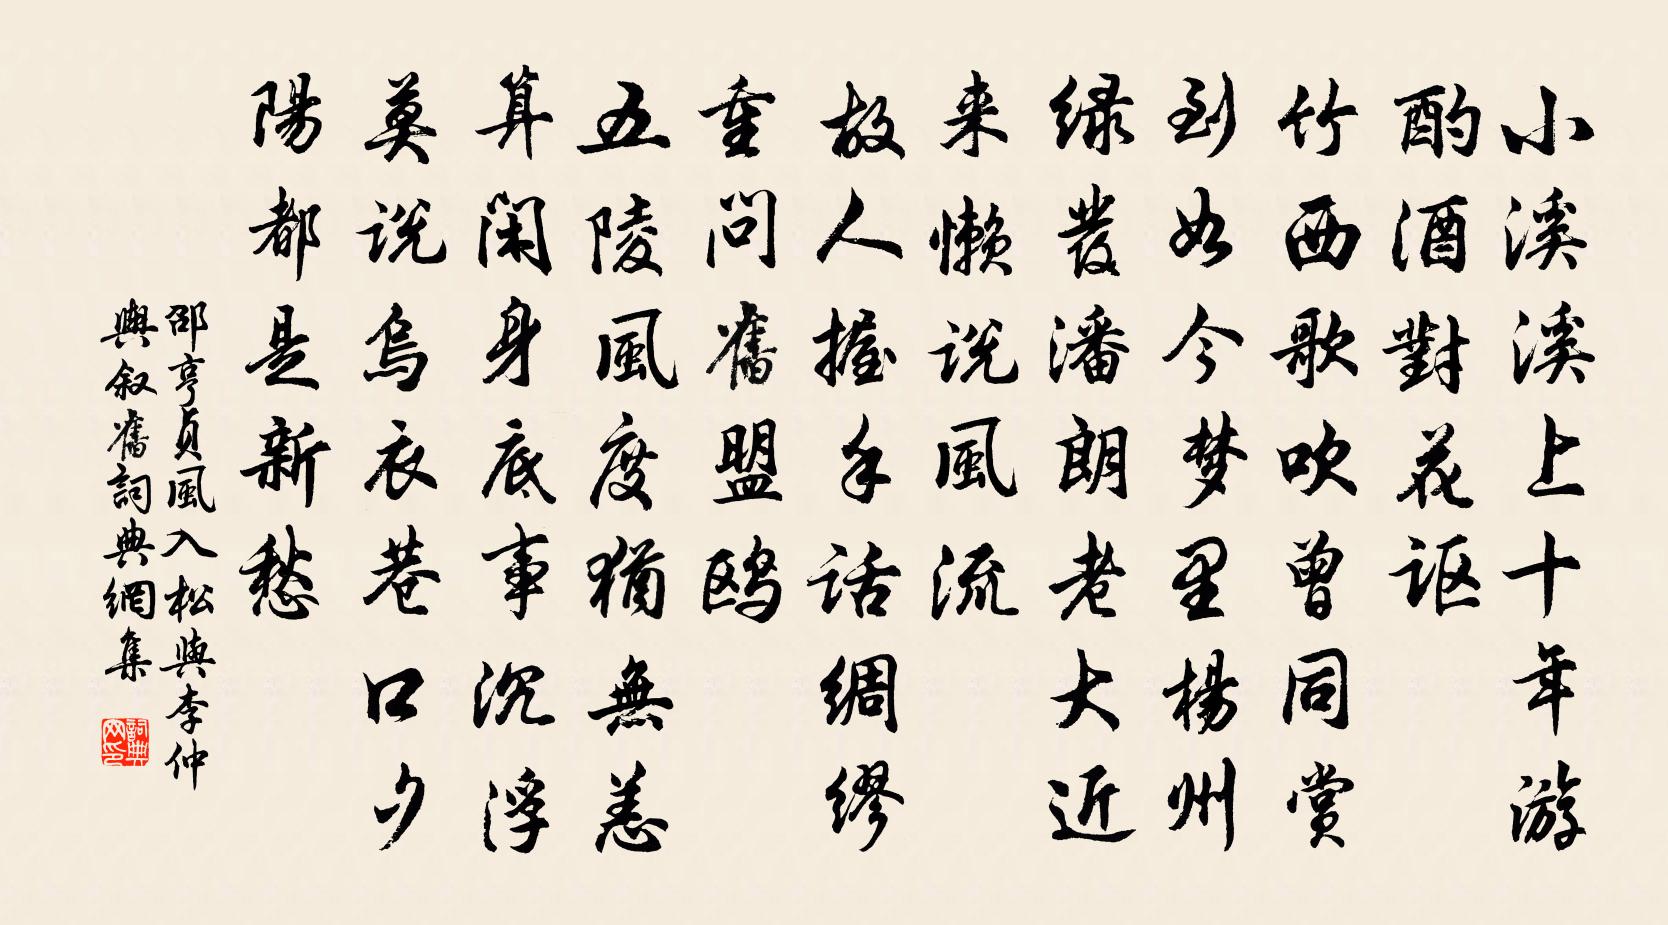 小溪溪上十年游
酌酒對花讴
竹西歌吹曾同賞
到如今梦里楊州
绿發潘朗老大近
来懒说風流
故人握手话绸缪
重问舊盟鸥
五陵風度猶無恙
算闲身底事沉浮
莫说烏衣巷口夕
陽都是新愁
邵亨貞風入松與李仲
興叙舊詞典網集
詞典網印